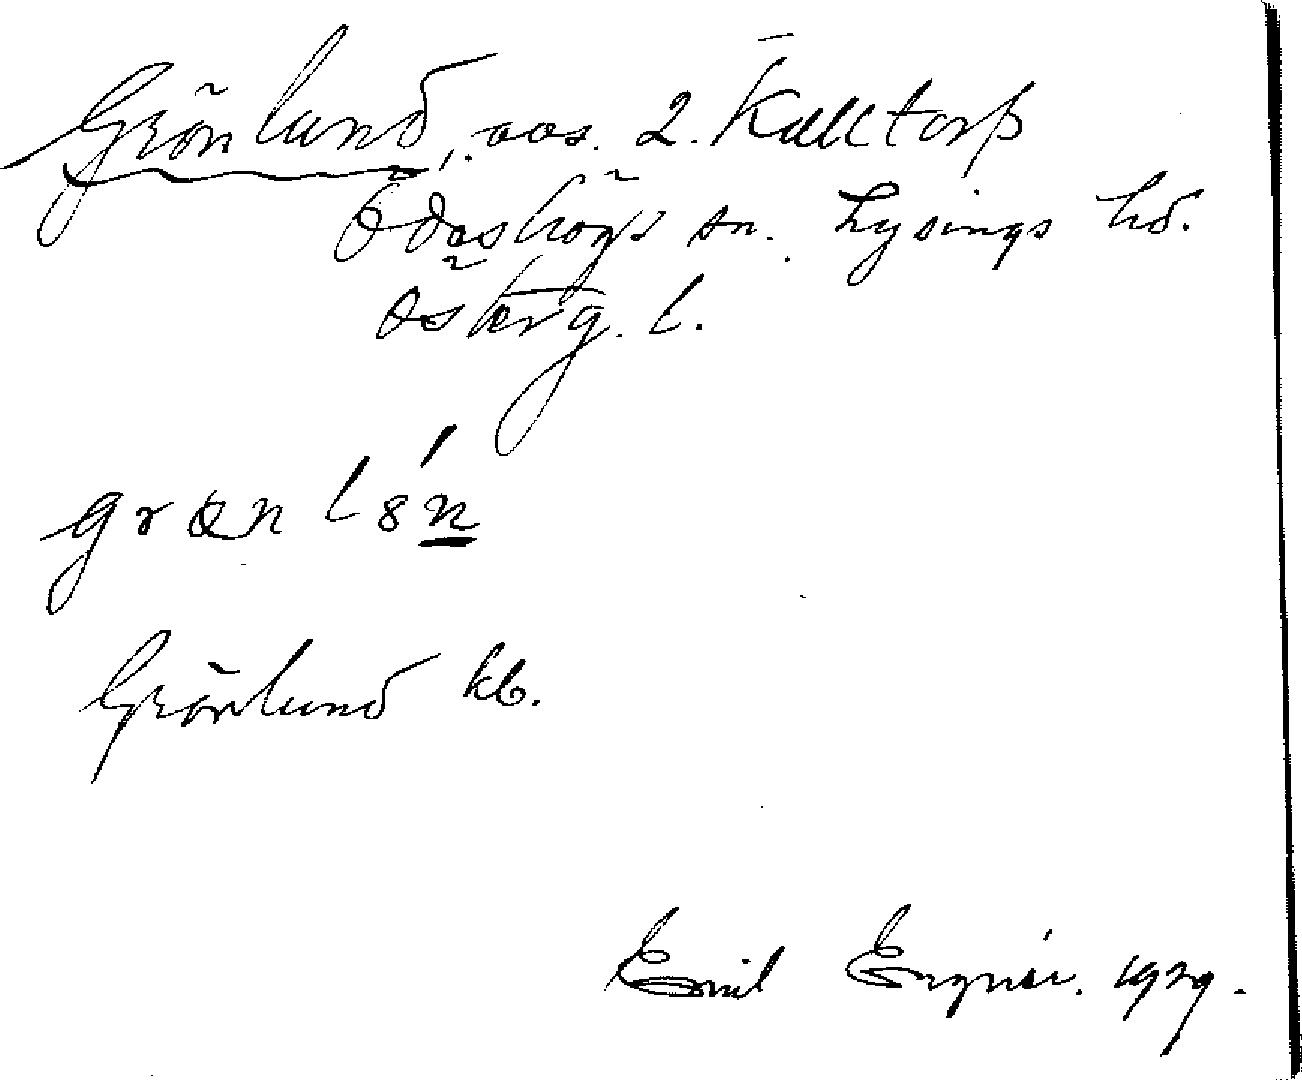 Grönlund, aos. 2. Kulltorp
Ödeshögs sn. Lysings hd.
Österg. l.
Grönlund kb.
Emil Engnér. 1929.